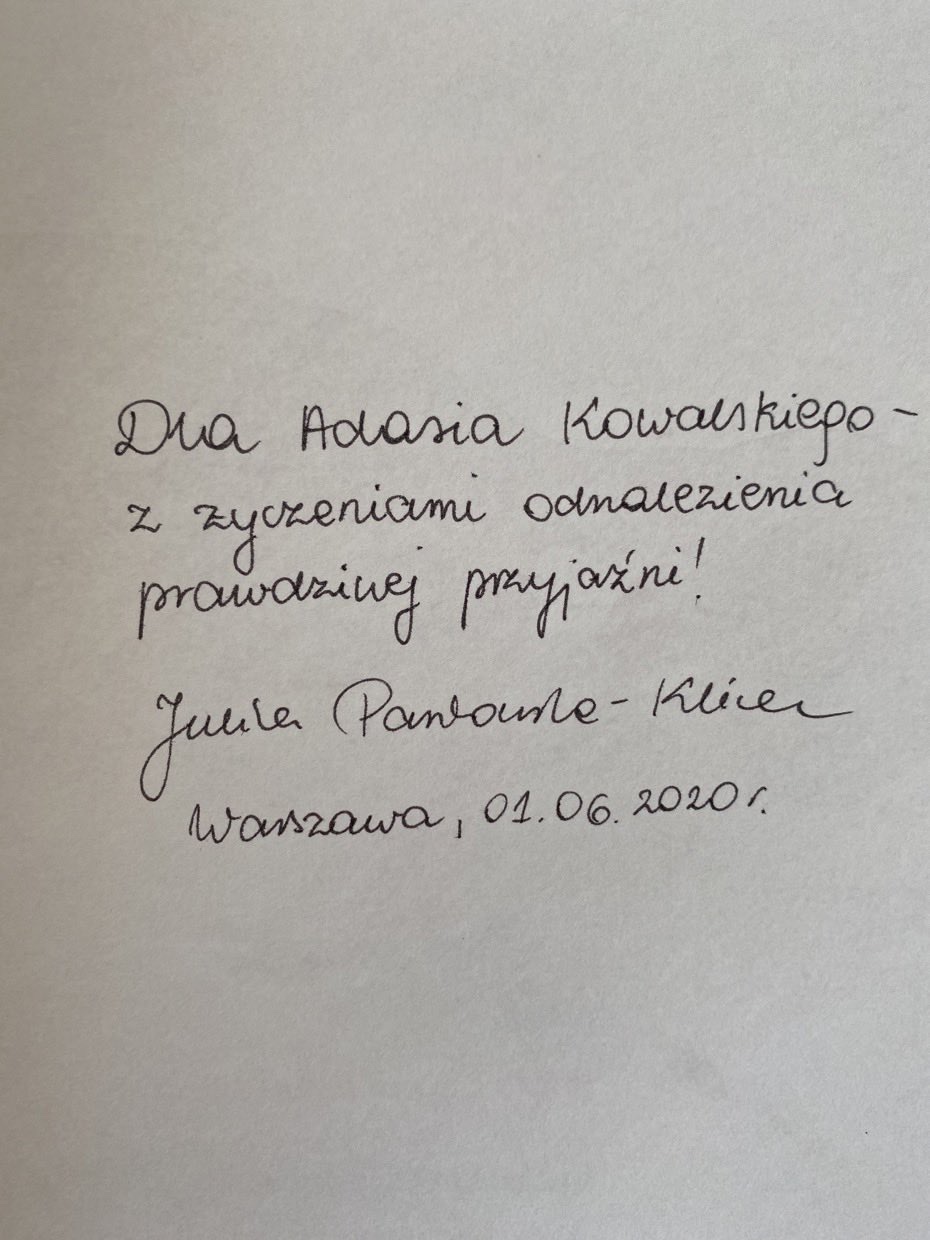 Dla Adasia Kowalskiego -
z życzeniami odnalezienia
prawdziwej przyjaźni!
Julia Pawłowska - Klicer
Warszawa, 01.06.2020 r.